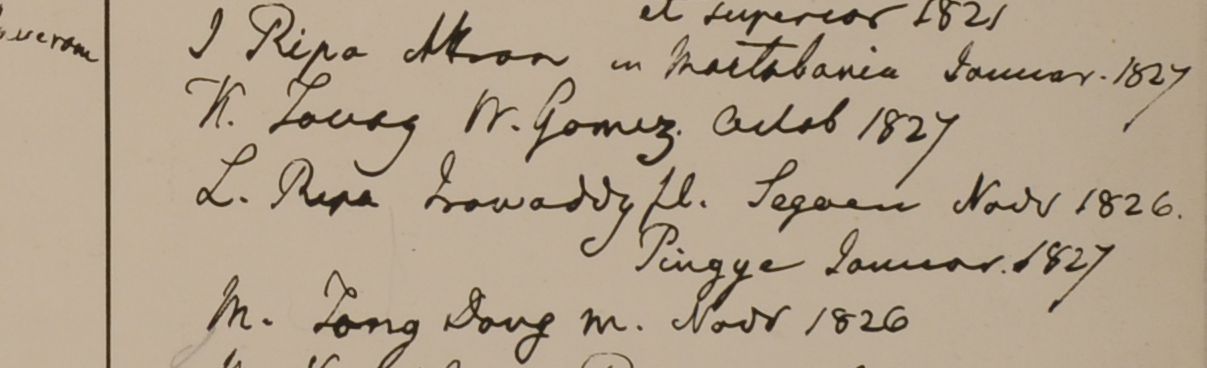 et superior 1821
I Ripa Attran in Martabania Januar. 1827
K. Tavoy W. Gomez. Octob 1827
L. Ripa Irawaddy fl. Segaen Novr 1826.
Pingye Januar. 1827
M. Tong Dong m. Novr 1826